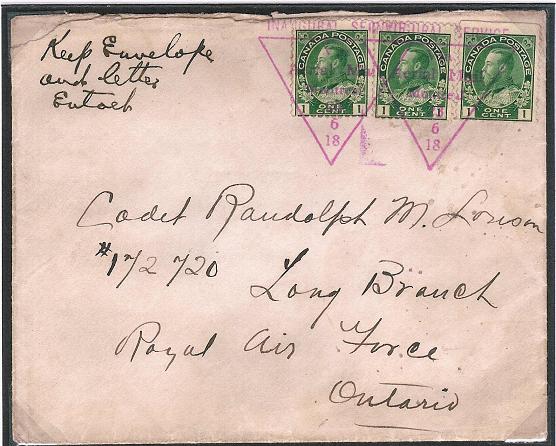 INAUGURAL SERVICE
Keep Envelope
and letter
Intact
CANADA POSTAGE CANADA POSTAGE CANADA POSTAGE
1 ONE CENT 1 1 ONE CENT 1 1 ONE CENT 1
6 6
18 18
Cadet Randolph M.
#172720
Long Branch
Royal Air Force
Ontario